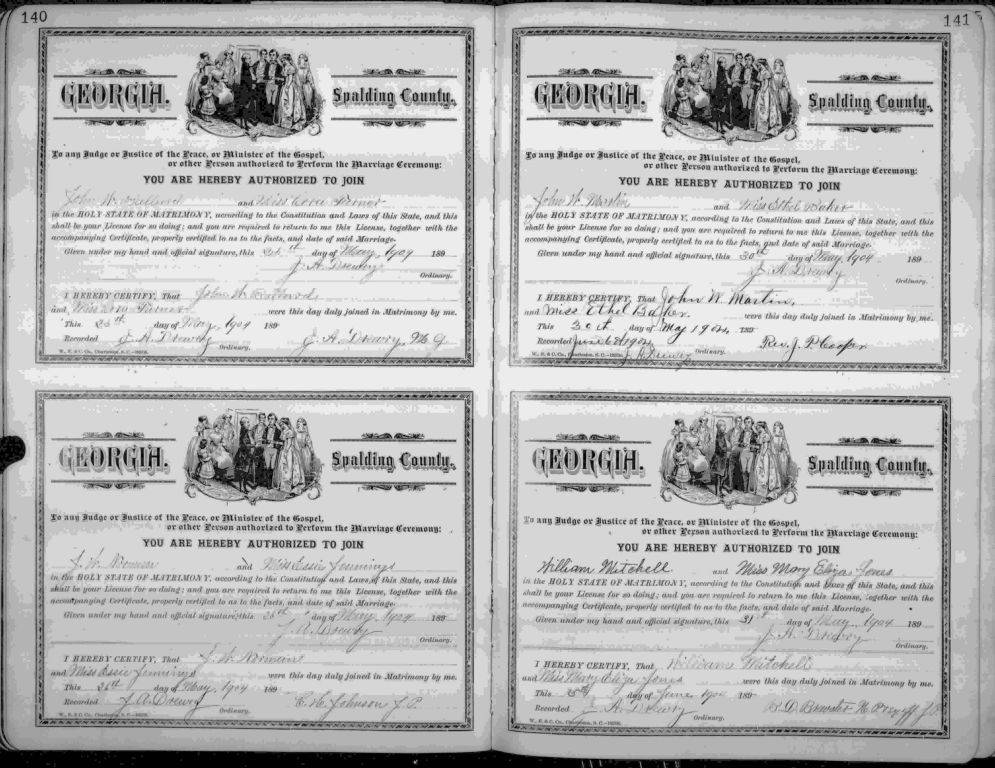 140
GEORGIA. Spalding County.
To any Judge or Justice of the Peace, or Minister of the Gospel,
or other Person authorized to Perform the Marriage Ceremony:
YOU ARE HEREBY AUTHORIZED TO JOIN
John W. and Miss
in the HOLY STATE OF MATRIMONY, according to the Constitution and Laws of this State, and this
shall be your License for so doing; and you are required to return to me this License, together with the
accompanying Certificate, properly certified to as to the facts, and date of said Marriage.
Given under my hand and official signature, this day of May, 1904 189
J. A. Drewry
Ordinary.
I HEREBY CERTIFY, That John W.
and Miss were this day duly joined in Matrimony by me.
This day of May, 1904 189
Recorded J. A. Drewry J. A. Drewry,
Ordinary.
GEORGIA. Spalding County.
To any Judge or Justice of the Peace, or Minister of the Gospel,
or other Person authorized to Perform the Marriage Ceremony:
YOU ARE HEREBY AUTHORIZED TO JOIN
J. W. Norman and Miss Essie Jennings
in the HOLY STATE OF MATRIMONY, according to the Constitution and Laws of this State, and this
shall be your License for so doing; and you are required to return to me this License, together with the
accompanying Certificate, properly certified to as to the facts, and date of said Marriage.
Given under my hand and official signature, this 26th day of May, 1904 189
J. A. Drewry
Ordinary.
I HEREBY CERTIFY, That J. W. Norman
and Miss Essie Jennings were this day duly joined in Matrimony by me.
This 26th day of May, 1904 189
Recorded J. A. Drewry C. H. Johnson J. P.
Ordinary.
141
GEORGIA. Spalding County.
To any Judge or Justice of the Peace, or Minister of the Gospel,
or other Person authorized to Perform the Marriage Ceremony:
YOU ARE HEREBY AUTHORIZED TO JOIN
John W. Martin and Miss Ethel Baker
in the HOLY STATE OF MATRIMONY, according to the Constitution and Laws of this State, and this
shall be your License for so doing; and you are required to return to me this License, together with the
accompanying Certificate, properly certified to as to the facts, and date of said Marriage.
Given under my hand and official signature, this 30th day of May, 1904 189
J. A. Drewry
Ordinary.
I HEREBY CERTIFY, That John W. Martin,
and Miss Ethel Baker. were this day duly joined in Matrimony by me.
This 30th day of May 1904, 189
Recorded June 1904 Rev. J. P. Cooper
J. A. Drewry Ordinary.
GEORGIA. Spalding County.
To any Judge or Justice of the Peace, or Minister of the Gospel,
or other Person authorized to Perform the Marriage Ceremony:
YOU ARE HEREBY AUTHORIZED TO JOIN
William Mitchell and Miss Mary Eliza Jones
in the HOLY STATE OF MATRIMONY, according to the Constitution and Laws of this State, and this
shall be your License for so doing; and you are required to return to me this License, together with the
accompanying Certificate, properly certified to as to the facts, and date of said Marriage.
Given under my hand and official signature, this 31st day of May, 1904 189
J. A. Drewry
Ordinary.
I HEREBY CERTIFY, That William Mitchell
and Miss Mary Eliza Jones were this day duly joined in Matrimony by me.
This day of June 1904 189
Recorded J. A. Drewry Brewster
Ordinary.